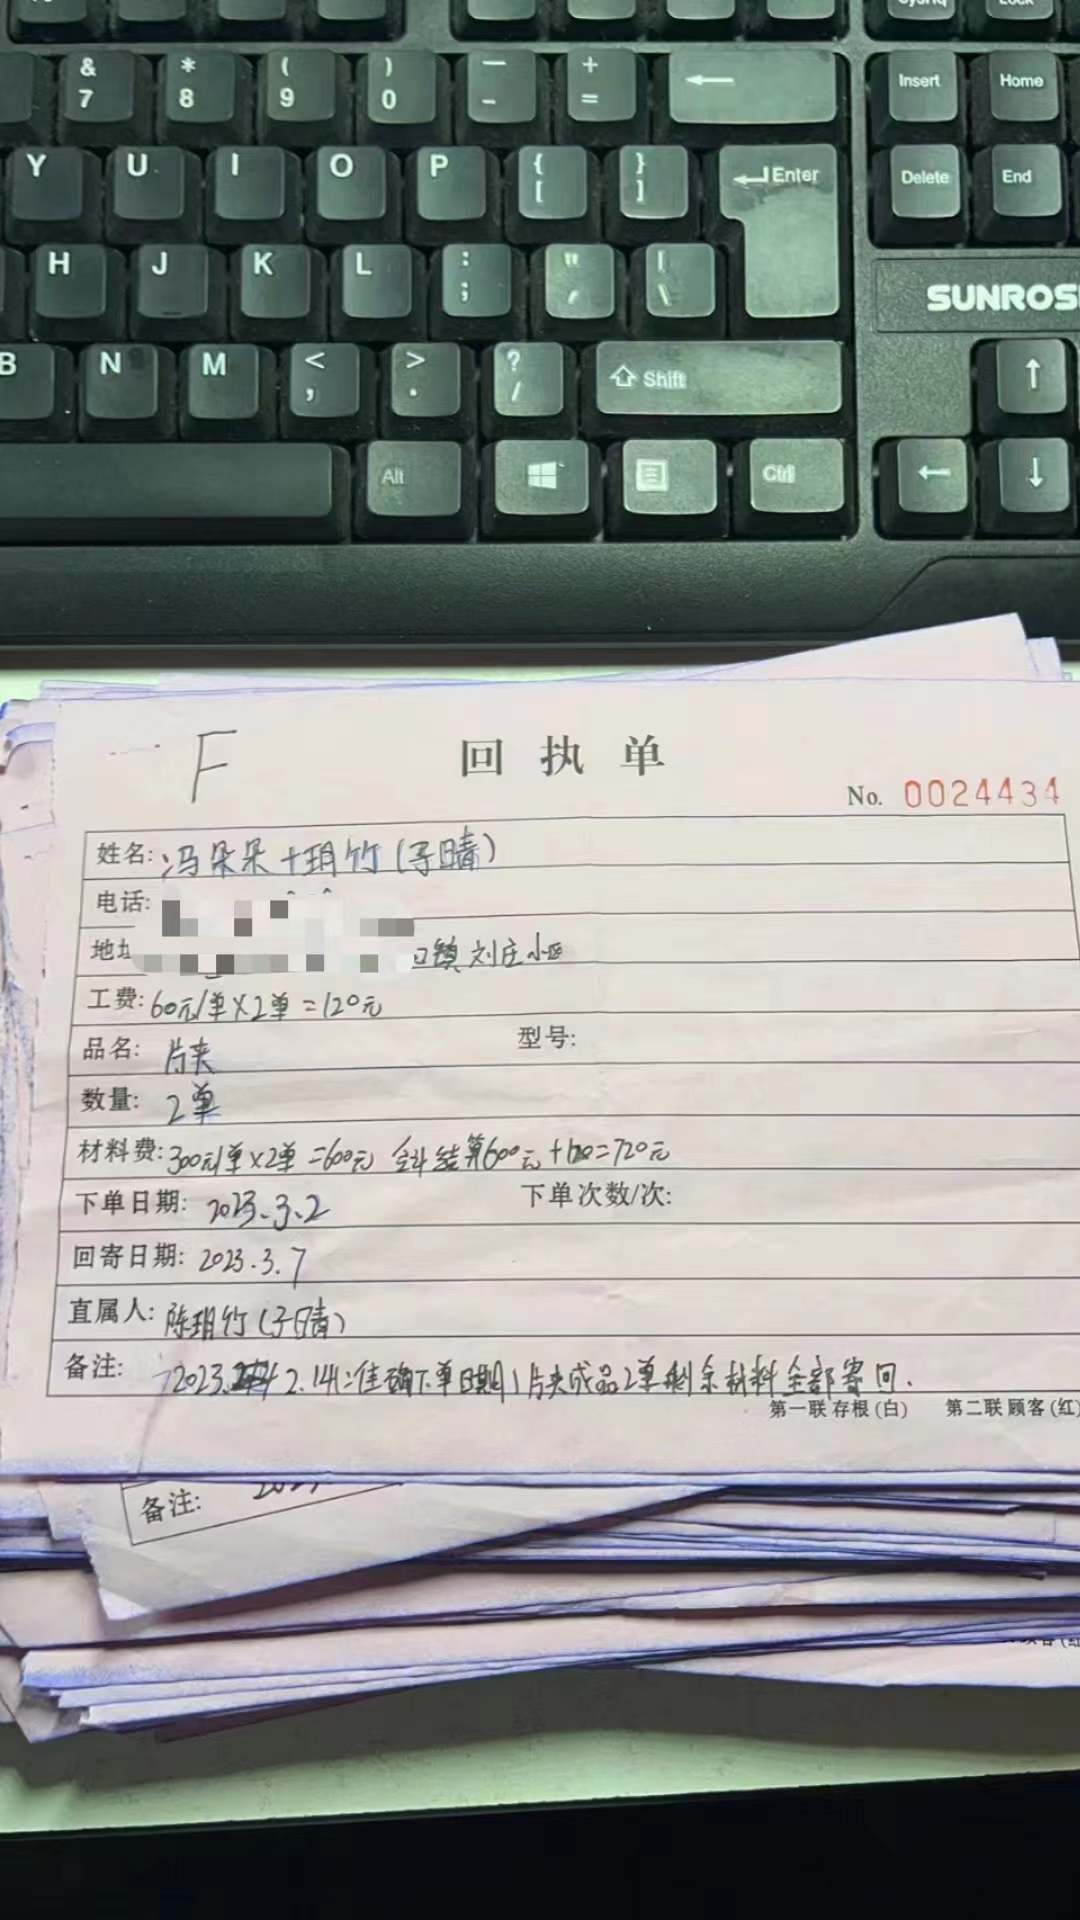 SysRq
Lock
& 7
* 8
( 9
) 0
— -
+ =
←
Insert
Home
Y
U
I
O
P
{ [
} ]
Enter
Delete
End
H
J
K
L
: ;
" '
| \
SUNROS
B
N
M
< ,
> .
? /
Shift
↑
Alt
Ctrl
←
↓
F
回执单
No. 0024434
姓名: 冯朵朵+玥竹(子晴)
电话:
地址 口镇刘庄小区
工费: 60元/单×2单=120元
品名: 片夹 型号:
数量: 2单
材料费: 300元/单×2单=600元 结算600元+120=720元
下单日期: 2023.3.2 下单次数/次:
回寄日期: 2023.3.7
直属人: 陈玥竹(子晴)
备注: 2023. 2.14准确下单日期 片夹成品2单剩余材料全部寄回.
第一联 存根(白) 第二联 顾客(红)
备注: